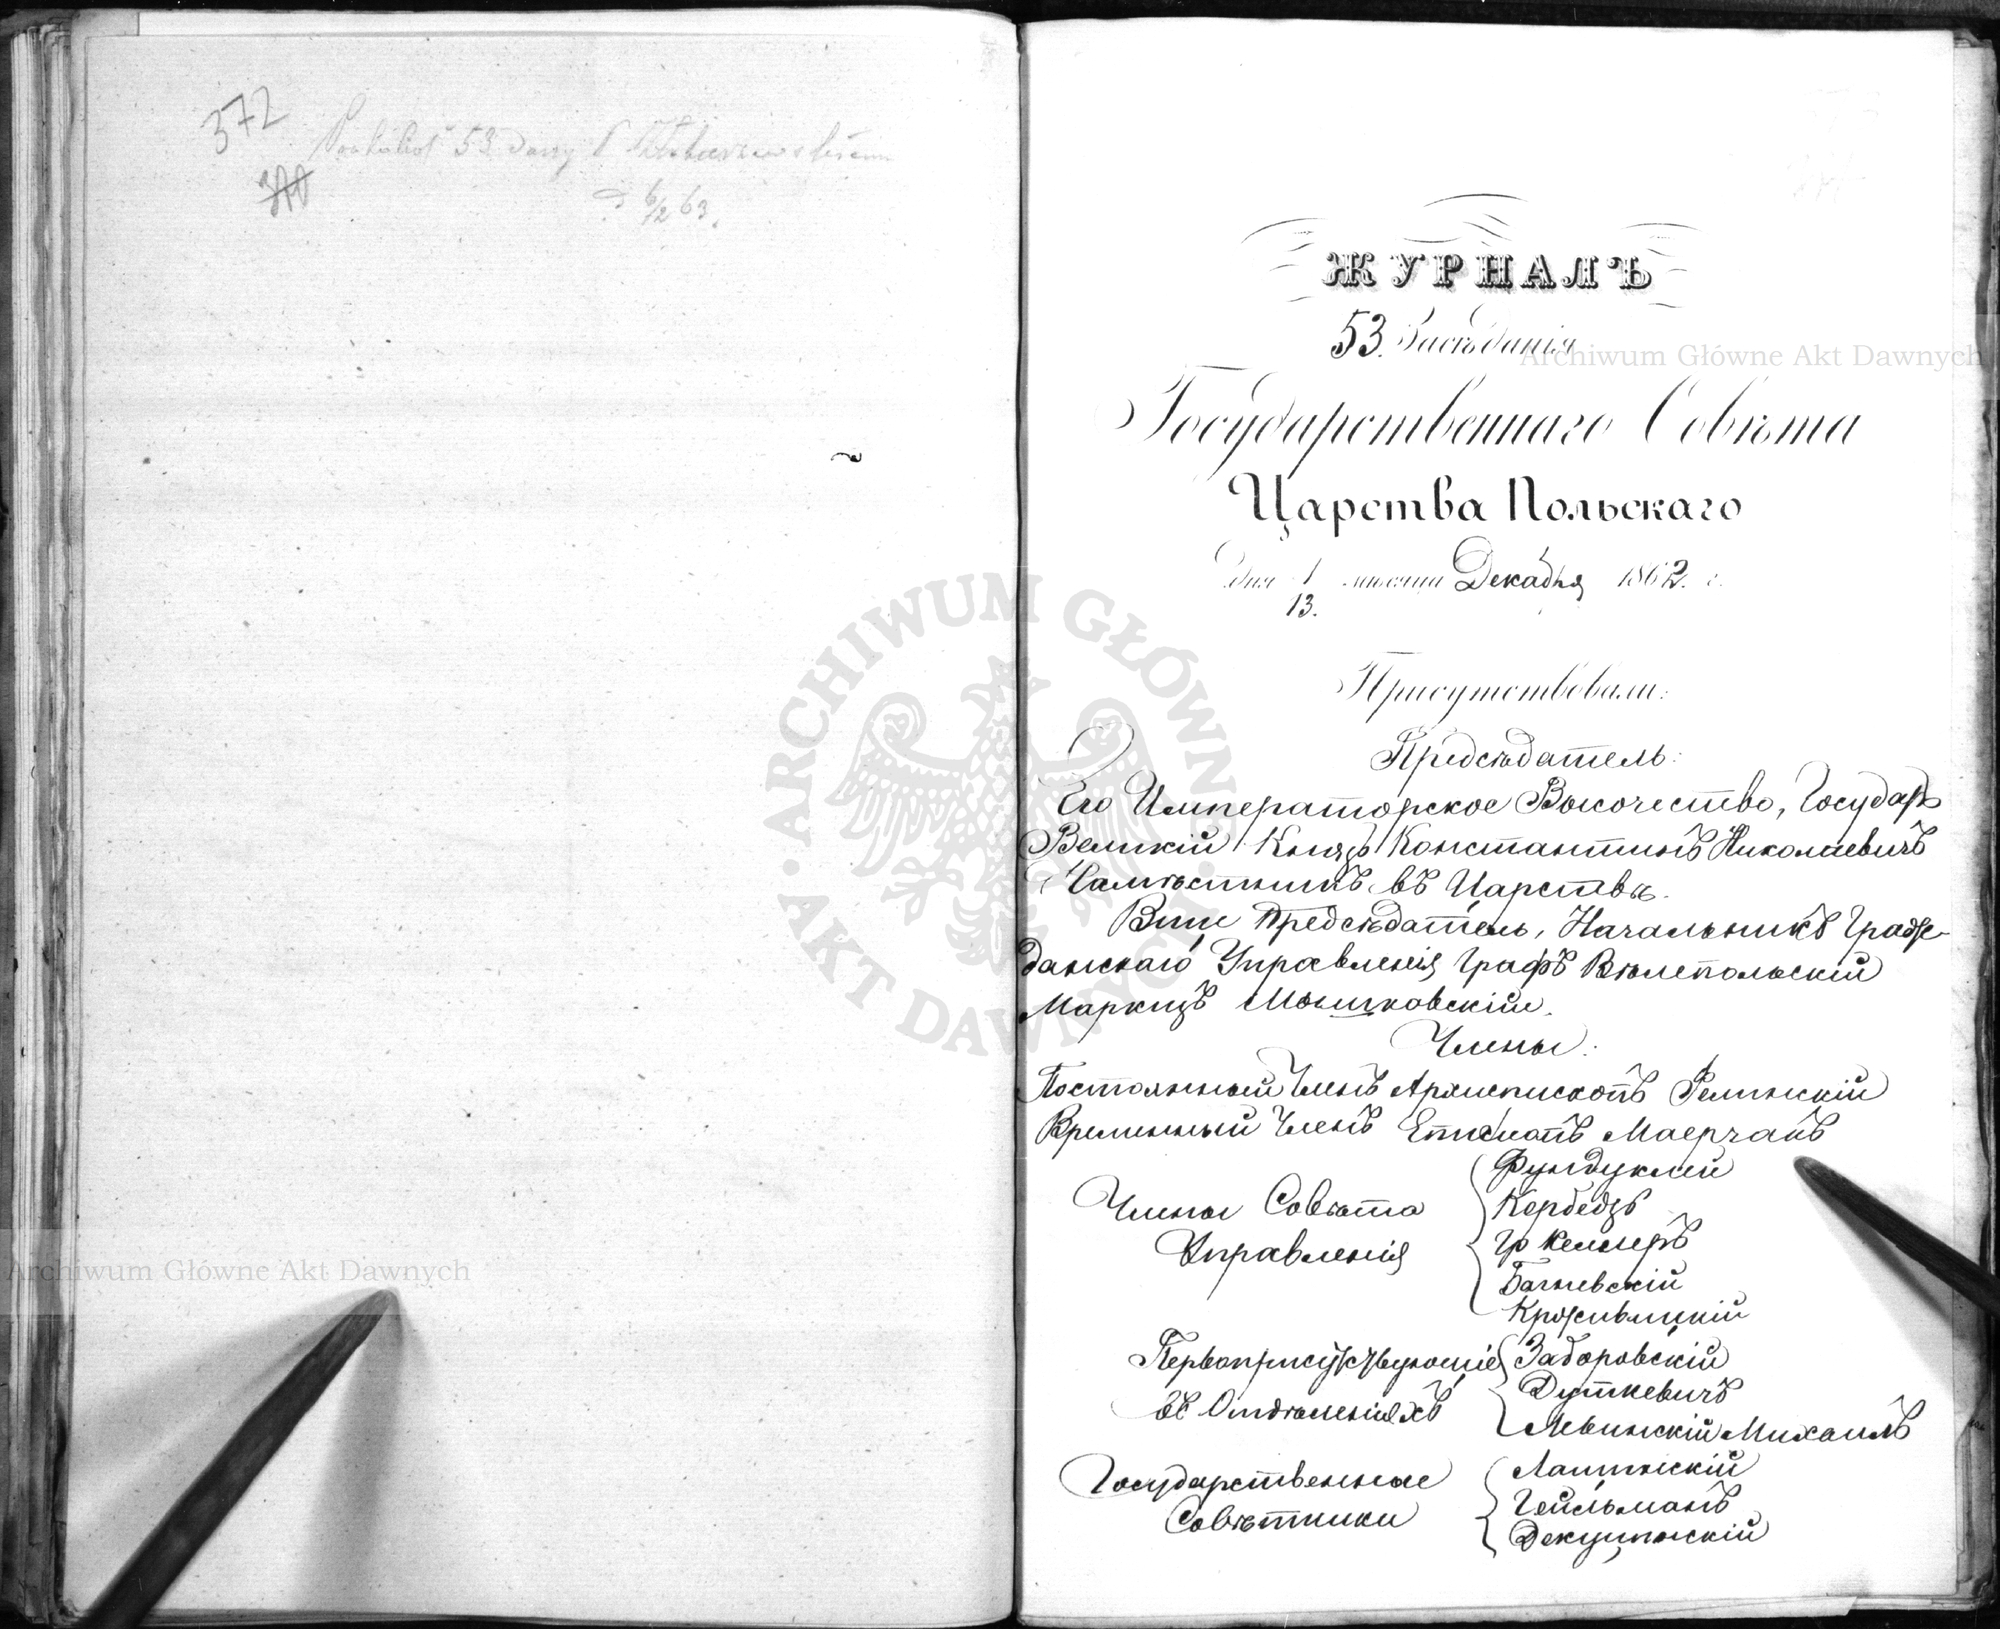 372
53 dany
6/2 63.
ЖУРНАЛЪ
53. Засѣданія
Государственнаго Совѣта
Царства Польскаго
дня 1/13. мѣсяца Декабря 1862. г.
Присутствовали:
Предсѣдатель:
Его Императорское Высочество, Государь
Великій Князь Константинъ Николаевичъ
Намѣстникъ въ Царствѣ.
Вице Предсѣдатель, Начальникъ Граж-
данскаго Управленія Графъ Вѣлепольскій
Маркизъ Мышковскій.
Члены:
Постоянный Членъ Архіепископъ Фелинскій
Временный Членъ Епископъ Маерчакъ
Члены Совѣта
Управленія
Фундуклей
Кербедзъ
Гр Келлеръ
Багневскій
Кржсивицкій
Первоприсутствующіе
въ Отдѣленіяхъ
Заборовскій
Дуткевичъ
Левинскій Михаилъ
Государственные
Совѣтники
Лащинскій
Гейльманъ
Декуцинскій
Archiwum Główne Akt Dawnych
ARCHIWUM GŁÓWNE AKT DAWNYCH
Archiwum Główne Akt Dawnych